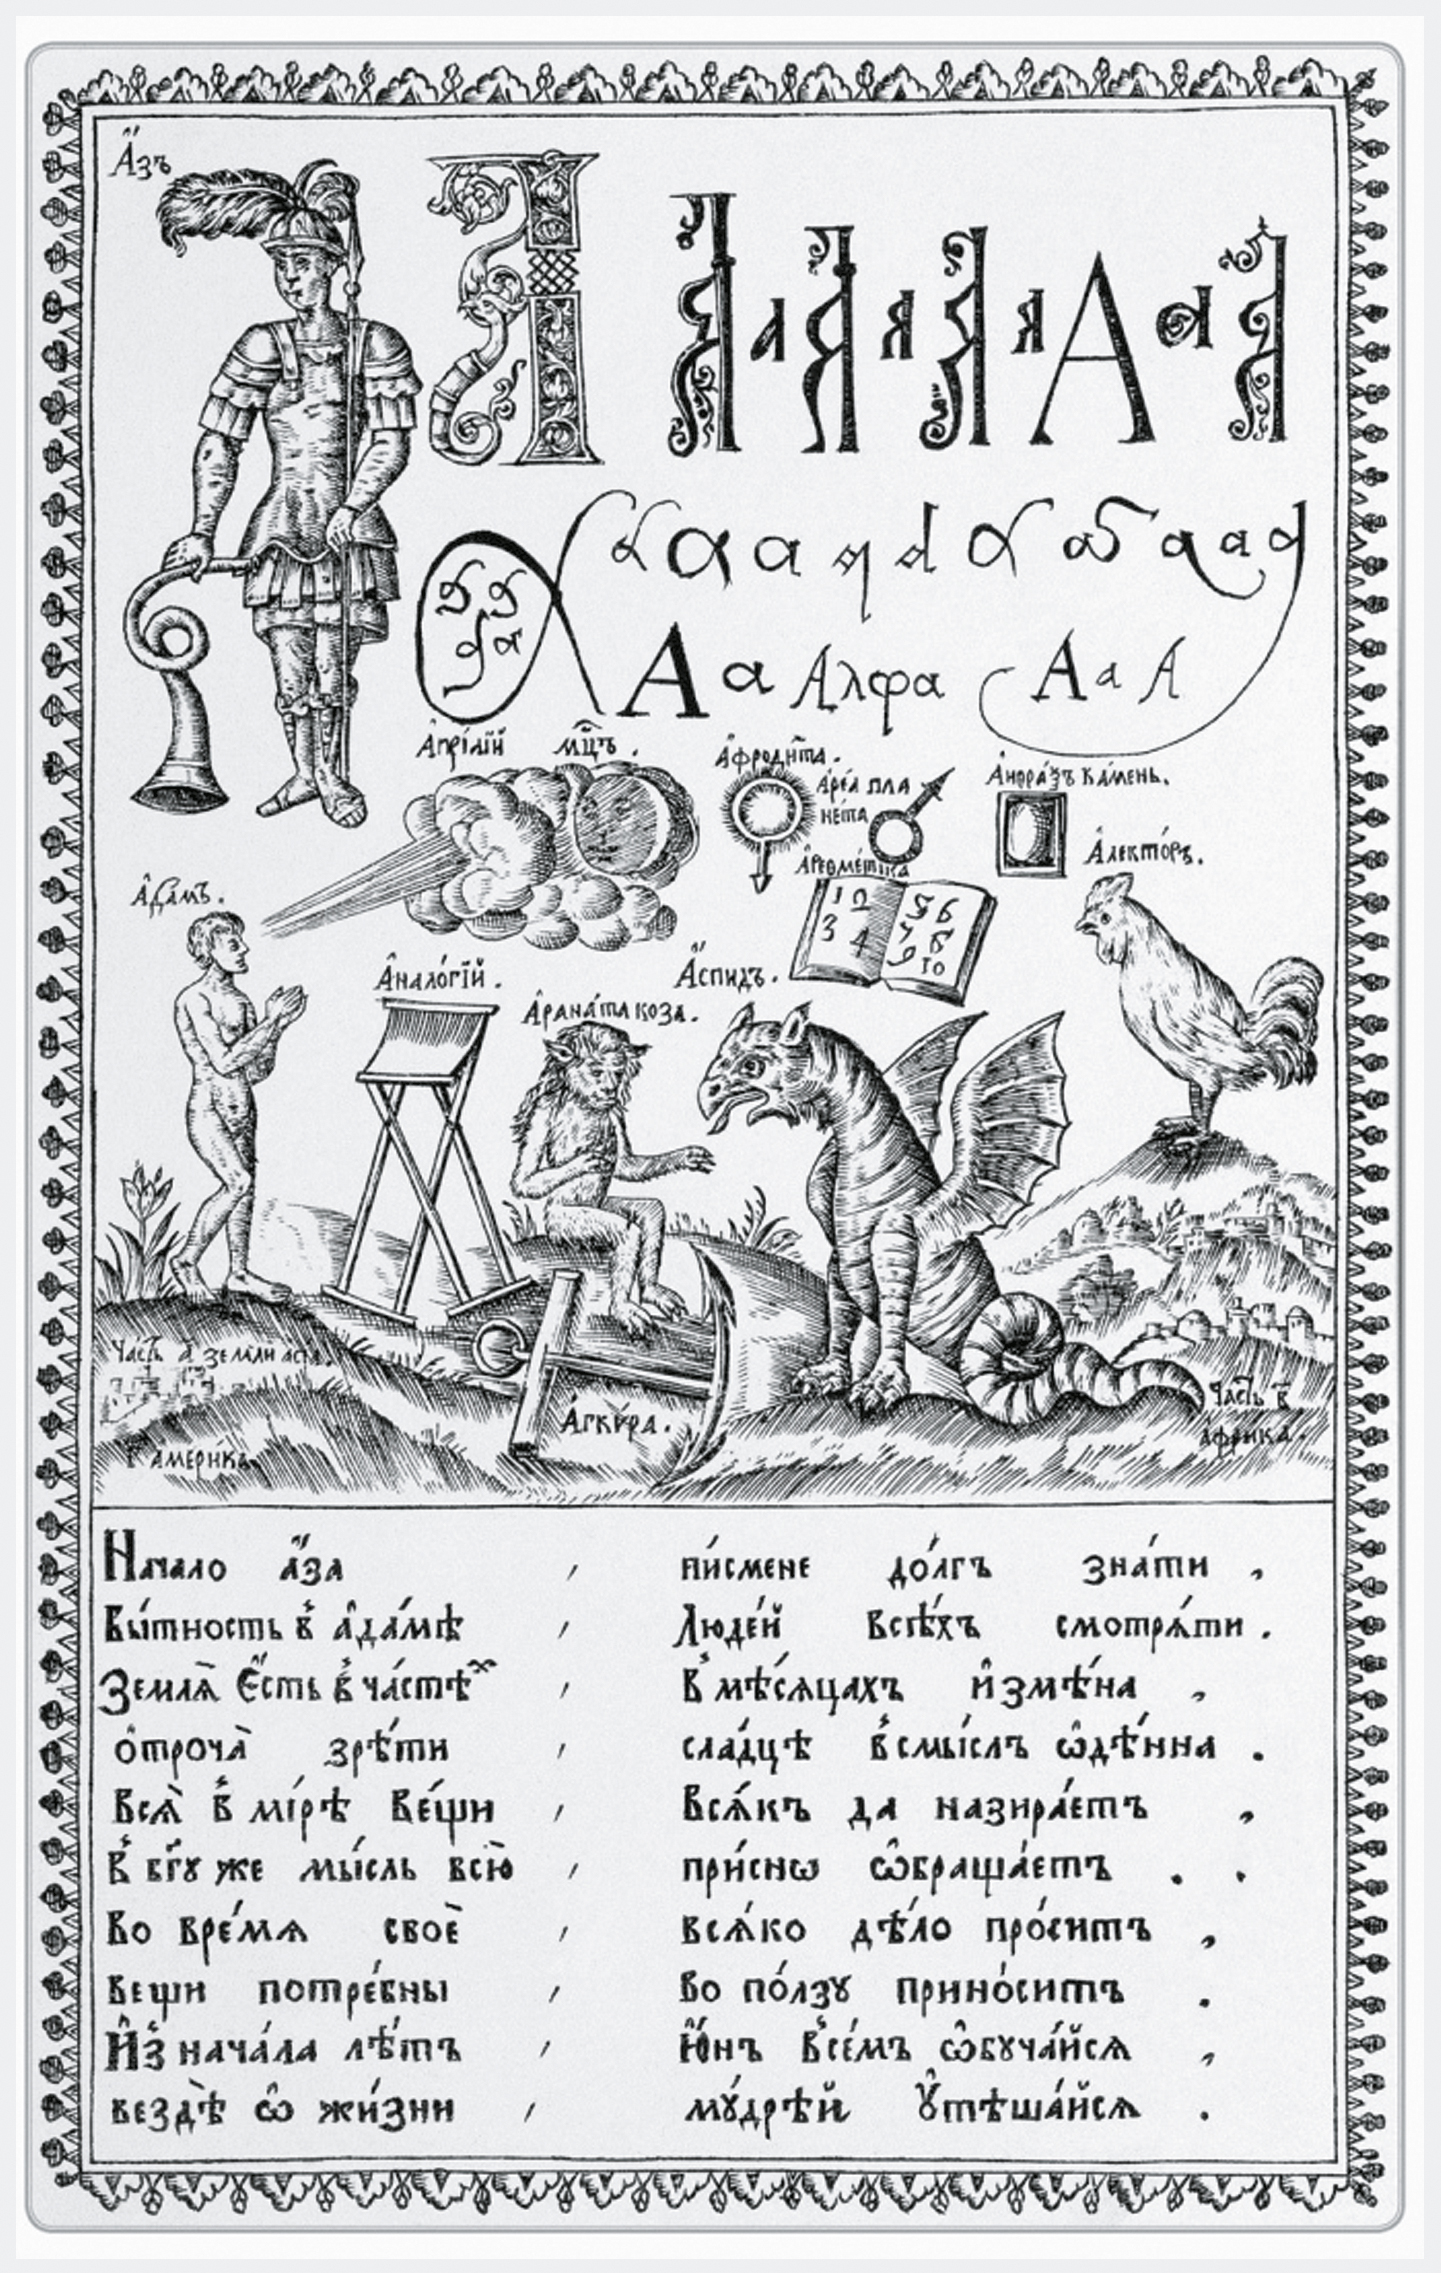 А҆́зъ
А а А а А а А а А
а а а а а а а а а а а
А а Алфа А а А
А҆прі́лїй мц҃ъ .
А҆фроди́та .
А҆ре́а пла
не́та
А҆нѳра́ѯъ ка́мень .
А҆ле́кто́ръ .
А҆реѳме́тіка
1 2 3 4 5 6 7 8 9 10
А҆да́мъ .
А҆нало́гїй .
А҆́спидъ .
А҆рана́та коза .
Часть а҃ земли
А҆гкѵ́ра .
Часть в҃
а҆фрика .
америка
Начало а҆́за , пи́смене до́лгъ зна́ти ,
Бы́тность в̾ а҆да́мѣ , Люде́й всѣ́хъ смотрѧ́ти .
Землѧ̀ Є҆́сть в̾ ча́стѣх , В̾ мѣ́сѧцахъ и҆змѣ́на ,
ѻ҆троча̀ зрѣ́ти , сла́дцѣ в̾смы́слъ ѡ҆дѣ́нна .
Всѧ̀ в̾ мі́рѣ ве́щи , Всѧ́къ да назира́етъ ,
В̾ бг҃ꙋ же мы́сль всю̀ , при́снѡ ѡ҆браща́етъ . .
Во вре́мѧ своѐ , всѧ́ко дѣ́ло про́ситъ ,
вещи потре́бны , во по́лзꙋ прино́ситъ .
И҆з̾ нача́ла лѣ́тъ , Ю҆́нъ в̾се́мъ ѡ҆бꙋча́йсѧ ,
вездѣ̀ ѡ҆ жи́зни , мꙋ́дрѣй ᲂу҆тѣша́йсѧ .